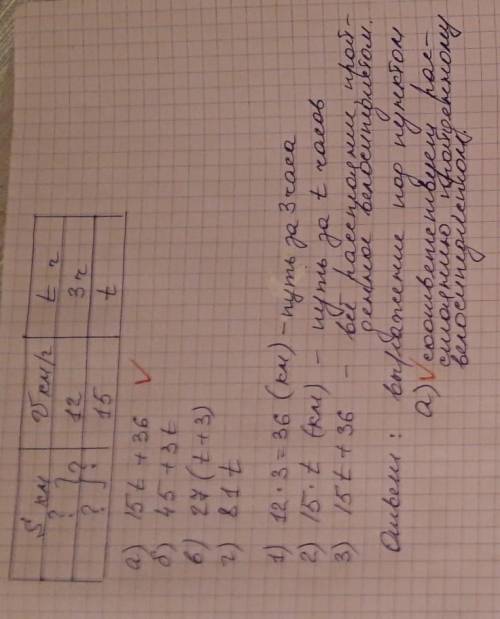 S км V км/ч t ч
? } ? 12 3ч
? 15 t
а) 15t + 36 ✓
б) 45 + 3t
в) 27(t+3)
г) 81t
1) 12 · 3 = 36 (км) – путь за 3 часа
2) 15 · t (км) – путь за t часов
3) 15t + 36 – всё расстояние прой-
денное велосипедистом.
Ответ: выражение под пунктом
а) ✓ соответствует рас-
стоянию пройденному
велосипедистом.